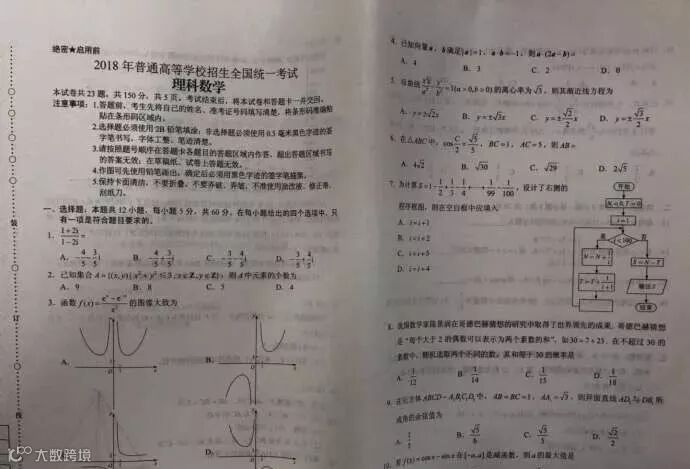 绝密★启用前
2018 年普通高等学校招生全国统一考试
理科数学
本试卷共 23 题，共 150 分，共 5 页，考试结束后，将本试卷和答题卡一并交回。
注意事项：1.答题前，考生先将自己的姓名、准考证号码填写清楚，将条形码准确粘
贴在条形码区域内。
2.选择题必须使用 2B 铅笔填涂；非选择题必须使用 0.5 毫米黑色字迹的签
字笔书写，字体工整、笔迹清楚。
3.请按照题号顺序在答题卡各题目的答题区域内作答，超出答题区域书写
的答案无效；在草稿纸、试卷上答题无效。
4.作图可先使用铅笔画出，确定后必须用黑色字迹的签字笔描黑。
5.保持卡面清洁，不要折叠，不要弄破、弄皱，不准使用涂改液、修正带、
刮纸刀。
一、选择题：本题共 12 小题，每小题 5 分，共 60 分，在每小题给出的四个选项中，只
有一项是符合题目要求的。
1. (1+2i)/(1−2i) =
A. −4/5−3/5 i B. −4/5+3/5 i C. −3/5−4/5 i D. −3/5+4/5 i
2. 已知集合 A={(x,y)|x²+y²≤3,x∈Z,y∈Z}，则 A 中元素的个数为
A. 9 B. 8 C. 5 D. 4
3. 函数 f(x)=(eˣ−e⁻ˣ)/x² 的图像大致为
A. B.
D.
4. 已知向量 a，b 满足|a|=1，a·b=−1，则 a·(2a−b)=
A. 4 B. 3 C. 2 D. 0
5. 双曲线 x²/a²−y²/b²=1(a>0,b>0)的离心率为√3，则其渐近线方程为
A. y=±√2x B. y=±√3x C. y=±√2/2 x D. y=±√3/2 x
6. 在△ABC中，cos C/2=√5/5，BC=1，AC=5，则 AB=
A. 4√2 B. √30 C. √29 D. 2√5
7. 为计算 S=1−1/2+1/3−1/4+⋯+1/99−1/100，设计了右侧的
程序框图，则在空白框中应填入
A. i=i+1
B. i=i+2
C. i=i+3
D. i=i+4
开始
N=0,T=0
i=1
是 i<100 否
N=N+1/i S=N−T
T=T+1/(i+1) 输出S
结束
8. 我国数学家陈景润在哥德巴赫猜想的研究中取得了世界领先的成果，哥德巴赫猜想
是“每个大于 2 的偶数可以表示为两个素数的和”，如30=7+23. 在不超过 30 的
素数中，随机选取两个不同的数，其和等于 30 的概率是
A. 1/12 B. 1/14 C. 1/15 D. 1/18
9. 在长方体 ABCD−A₁B₁C₁D₁ 中，AB=BC=1，AA₁=√3，则异面直线 AD₁与 DB₁ 所
成角的余弦值为
A. 1/5 B. √5/6 C. √5/5 D. √2/2
10. 若 f(x)=cosx−sinx 在[−a,a]是减函数，则 a 的最大值是
装
订
线
大数跨境